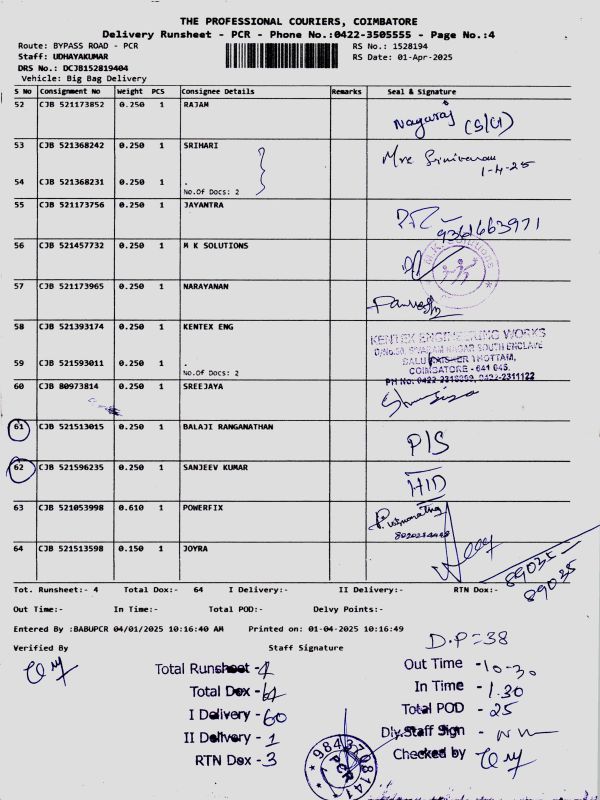 THE PROFESSIONAL COURIERS, COIMBATORE
Delivery Runsheet - PCR - Phone No.:0422-3505555 - Page No.:4
Route: BYPASS ROAD - PCR RS No.: 1528194
Staff: UDHAYAKUMAR RS Date: 01-Apr-2025
DRS No.: DCJB152819404
Vehicle: Big Bag Delivery
S No Consignment No Weight PCS Consignee Details Remarks Seal & Signature
52 CJB 521173852 0.250 1 RAJAM Nagaraj (S/G)
53 CJB 521368242 0.250 1 SRIHARI Mrs Srinivasan
1-4-25
54 CJB 521368231 0.250 1 .
No.Of Docs: 2
55 CJB 521173756 0.250 1 JAYANTRA
9361663971
56 CJB 521457732 0.250 1 M K SOLUTIONS
57 CJB 521173965 0.250 1 NARAYANAN
58 CJB 521393174 0.250 1 KENTEX ENG
KENTEX ENGINEERING WORKS
NAGAR SOUTH ENCLAVE
THOTTAM,
COIMBATORE - 641 045.
59 CJB 521593011 0.250 1 .
No.Of Docs: 2
PH No: 0422-2318059, 0422-2311122
60 CJB 80973814 0.250 1 SREEJAYA
61 CJB 521513015 0.250 1 BALAJI RANGANATHAN P/S
62 CJB 521596235 0.250 1 SANJEEV KUMAR H/D
63 CJB 521053998 0.610 1 POWERFIX
64 CJB 521513598 0.150 1 JOYRA
89035
89035
Tot. Runsheet:- 4 Total Dox:- 64 I Delivery:- II Delivery:- RTN Dox:-
Out Time:- In Time:- Total POD:- Delvy Points:-
Entered By :BABUPCR 04/01/2025 10:16:40 AM Printed on: 01-04-2025 10:16:49
Verified By Staff Signature D.P=38
Total Runsheet - 4 Out Time - 10-30
Total Dox - 64 In Time - 1.30
I Delivery - 60 Total POD - 25
II Delivery - 1 Dly.Staff Sign -
RTN Dox - 3 Checked by
9843708141
PCR